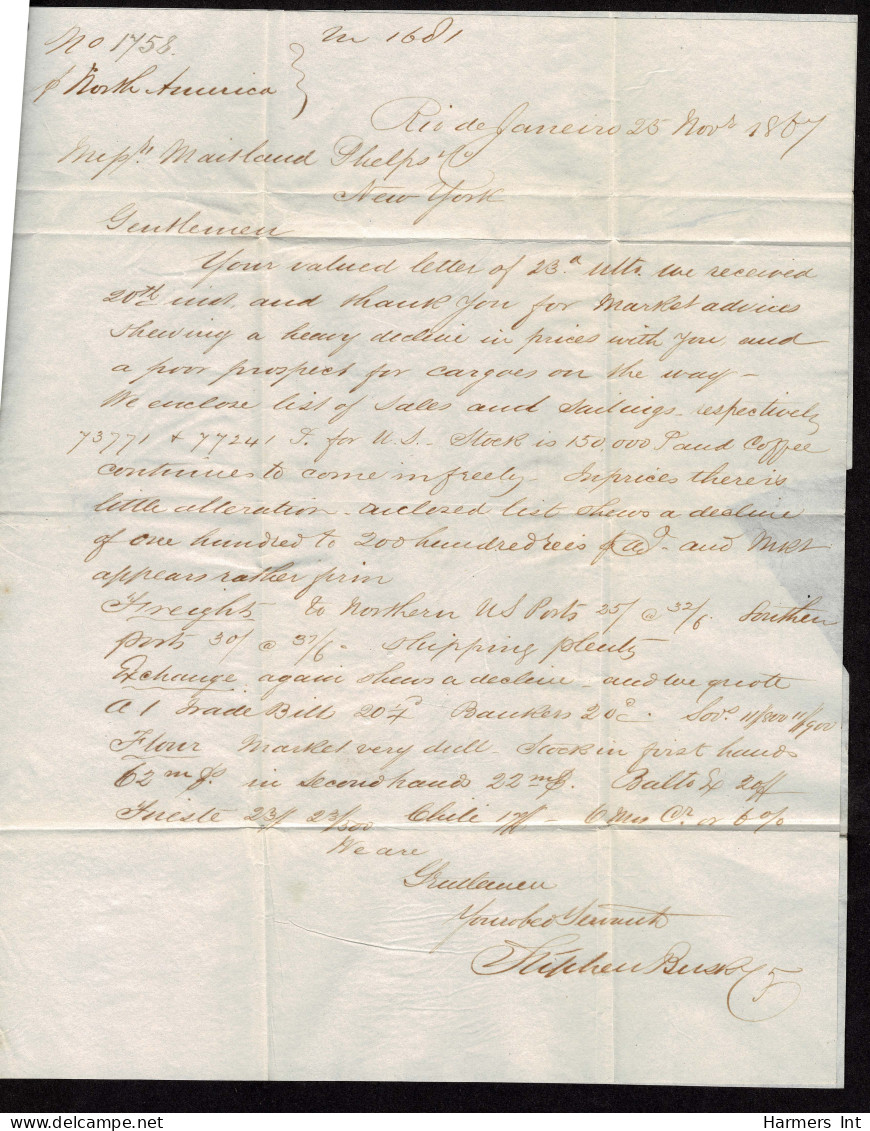 No 1758.
In 1681
p North America
Rio de Janeiro 25 Novr 1867
Messrs Maitland Phelps & Co
New York
Gentlemen
Your valued letter of 23d ulto. we received
20th inst. and thank you for Market advices
shewing a heavy decline in prices with you, and
a poor prospect for cargoes on the way –
We enclose list of sales and sailings respectively
73771 & 77241 for U.S. – Stock is 150,000 and Coffee
continues to come in freely. In prices there is
little alteration – enclosed list shews a decline
of one hundred to 200 hundred reis – and Mkt
appears rather firm
Freights to Northern US Ports 25/ @ 32/6. Southern
ports 30/ @ 37/6 – shipping plenty
Exchange again shews a decline – and we quote
A 1 Trade Bill 20¼d Bankers 20d. Sovs 11/800 11/900
Flour Market very dull – Stock in first hands
62 m in second hands 22 m. Balto Ex 20//
Trieste 23// 23/500 Chili 17// – 6 Mos Cr. or 6 %
We are
Gentlemen
Your obed Servants
Stephen Busk & Co
Harmers Int